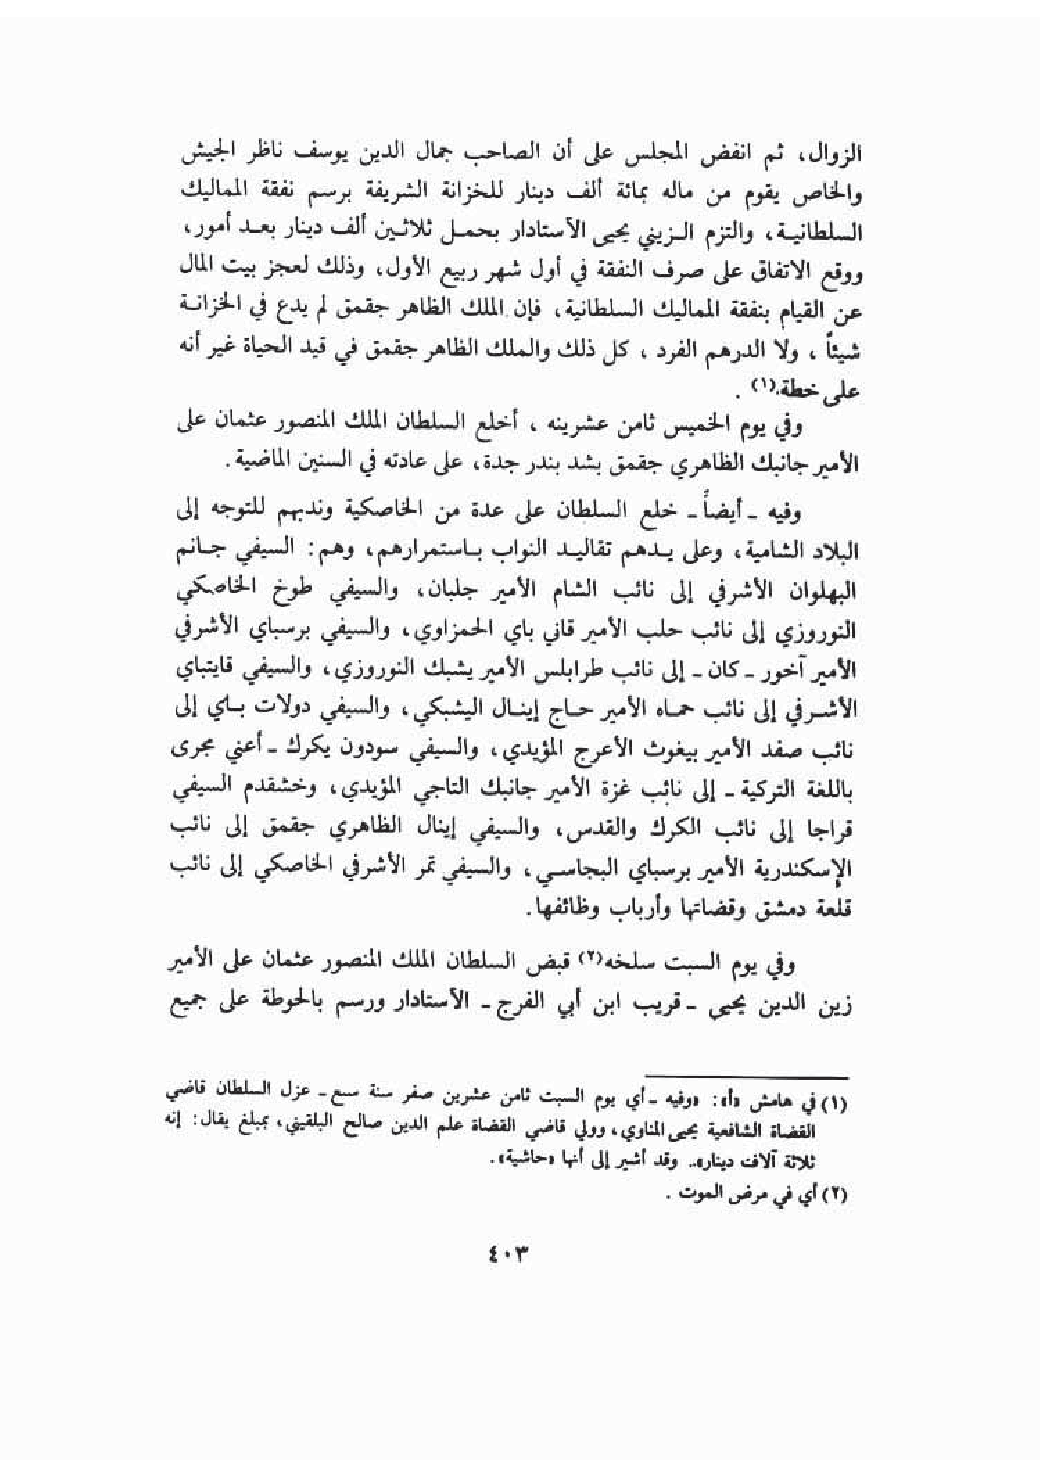 الزوال، ثم انفض المجلس على أن الصاحب جمال الدين يوسف ناظر الجيش
والخاص يقوم من ماله بمائة ألف دينار للخزانة الشريفة برسم نفقة المماليك
السلطانية، والتزم الزيني يحيى الأستادار بحمل ثلاثين ألف دينار بعد أمور،
ووقع الاتفاق على صرف النفقة في أول شهر ربيع الأول، وذلك لعجز بيت المال
عن القيام بنفقة المماليك السلطانية، فإن الملك الظاهر جقمق لم يدع في الخزانة
شيئاً ، ولا الدرهم الفرد ، كل ذلك والملك الظاهر جقمق في قيد الحياة غير أنه
على خطة(١) .
وفي يوم الخميس ثامن عشرينه ، أخلع السلطان الملك المنصور عثمان على
الأمير جانبك الظاهري جقمق بشد بندر جدة، على عادته في السنين الماضية.
وفيه - أيضاً - خلع السلطان على عدة من الخاصكية وندبهم للتوجه إلى
البلاد الشامية، وعلى يدهم تقاليد النواب باستمرارهم، وهم: السيفي جانم
البهلوان الأشرفي إلى نائب الشام الأمير جلبان، والسيفي طوخ الخاصكي
النوروزي إلى نائب حلب الأمير قاني باي الحمزاوي، والسيفي برسباي الأشرفي
الأمير آخور - كان - إلى نائب طرابلس الأمير يشبك النوروزي، والسيفي قايتباي
الأشرفي إلى نائب حماه الأمير حاج إينال اليشبكي، والسيفي دولات باي إلى
نائب صفد الأمير بيغوث الأعرج المؤيدي، والسيفي سودون يكرك - أعني مجرى
باللغة التركية - إلى نائب غزة الأمير جانبك التاجي المؤيدي، وخشقدم السيفي
قراجا إلى نائب الكرك والقدس، والسيفي إينال الظاهري جقمق إلى نائب
الإسكندرية الأمير برسباي البجاسي، والسيفي تمر الأشرفي الخاصكي إلى نائب
قلعة دمشق وقضاتها وأرباب وظائفها.
وفي يوم السبت سلخه(٢) قبض السلطان الملك المنصور عثمان على الأمير
زين الدين يحيى - قريب ابن أبي الفرج - الأستادار ورسم بالحوطة على جميع
(١) في هامش «أ»: «وفيه - أي يوم السبت ثامن عشرين صفر سنة سبع - عزل السلطان قاضي
القضاة الشافعية يحيى المناوي، وولي قاضي القضاة علم الدين صالح البلقيني، بمبلغ يقال: إنه
ثلاثة آلاف دينار».. وقد أشير إلى أنها «حاشية».
(٢) أي في مرض الموت .
٤٠٣